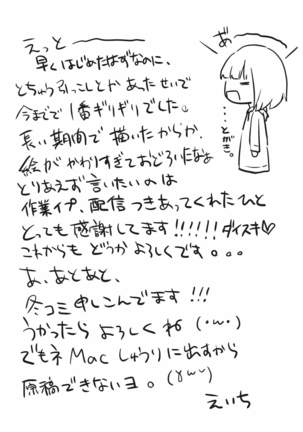 えっと――
早くはじめたはずなのに、
とちゅう引っこしとかあったせいで
今までで1番ギリギリでした。
長い期間で描いたからか、
絵がかわりすぎておどろいたなよ
とりあえず言いたいのは
作業イプ、配信つきあってくれたひと
とっても感謝してます!!!!!!ダイスキ♡
これからもどうかよろしくです。。。
あ、あとあと、
冬コミ申しこんでます!!!
うかったらよろしくね(・ω・)
でもネMacしゅうりに出すから
原稿できないヨ。
えいち
あ――
……とがき。